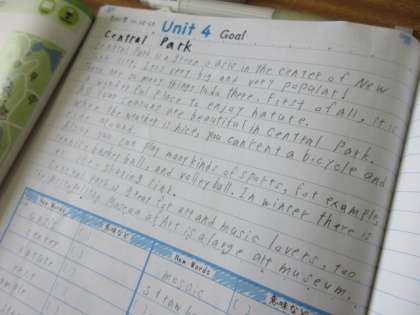 Unit 4 Goal
Central Park
Central Park is a green oasis in the center of New
York City. It's very big and very popular!
There are so many things to do there. First of all, it is
a wonderful place to enjoy nature.
All four seasons are beautiful in Central Park.
When the weather is nice, you can rent a bicycle and
ride around.
Also, you can play many kinds of sports, for example,
tennis, basketball, and volleyball. In winter there is
ice skating rink.
Central Park is great for art and music lovers, too
Metropolitan Museum of Art is a large art museum.
New Words
意味など
New Words
意味など
oasis
center
nature
rent
mosaic